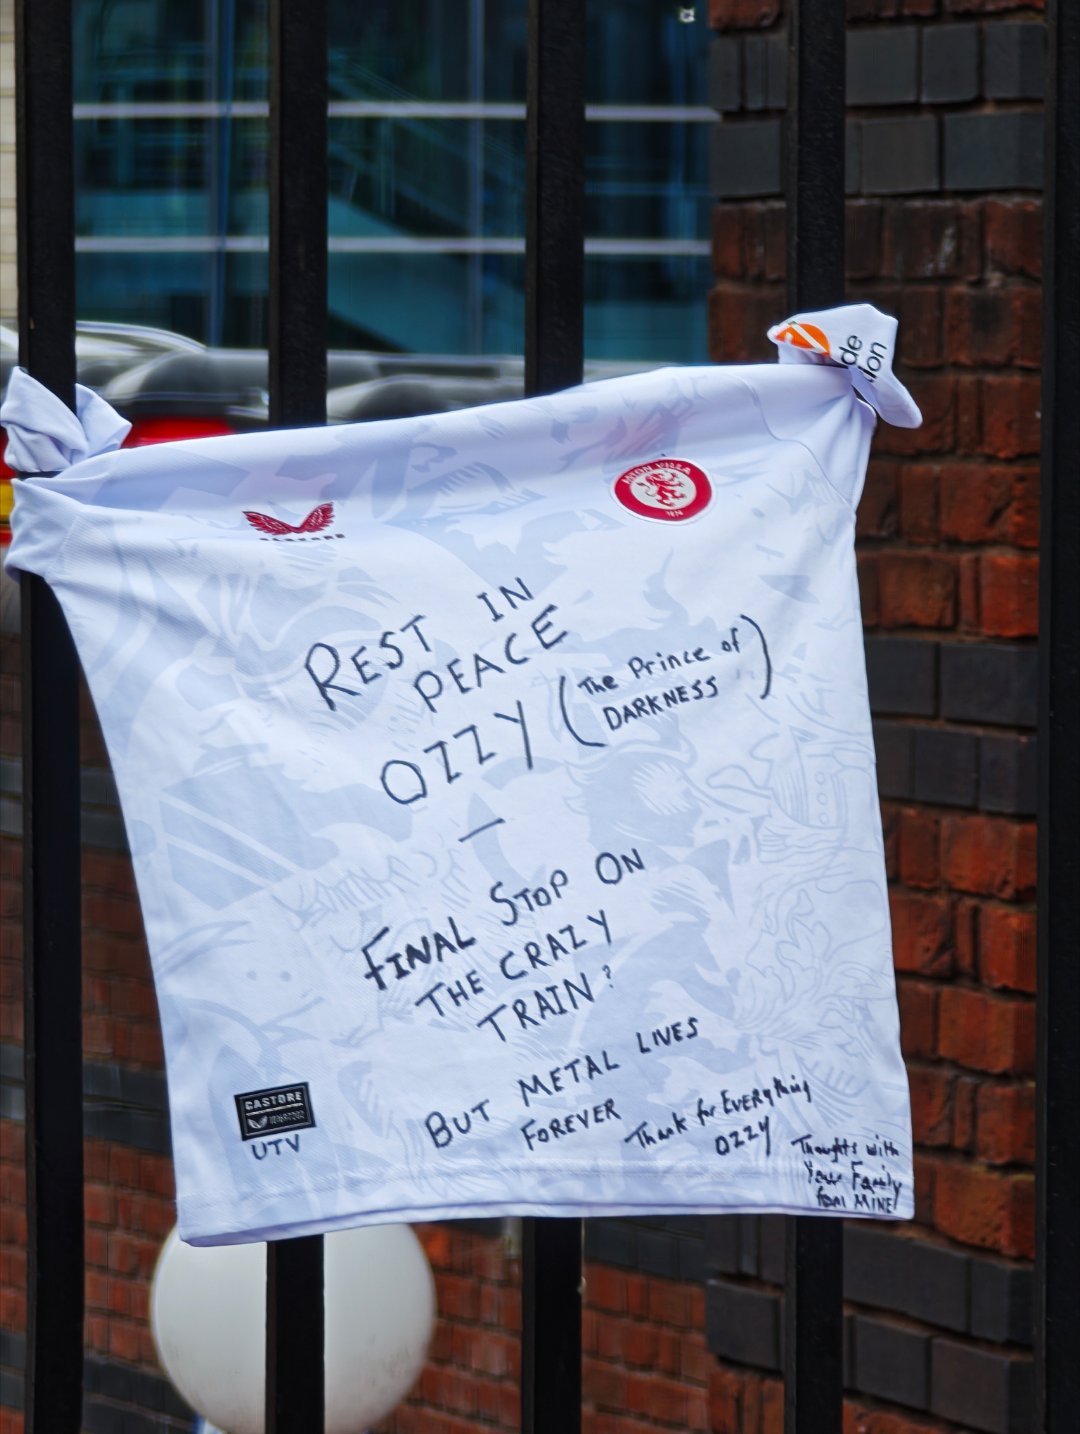 de
lon
ASTON VILLA
1874
REST IN
PEACE
OZZY (The Prince of
DARKNESS)
—
FINAL STOP ON
THE CRAZY
TRAIN?
BUT METAL LIVES
FOREVER
Thank for EVERYthing
OZZY
Thoughts with
Your Family
from MINE!
CASTORE
UTV